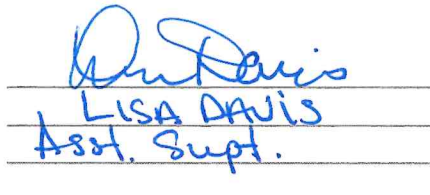 Davis
LISA DAVIS
Asst. Supt.